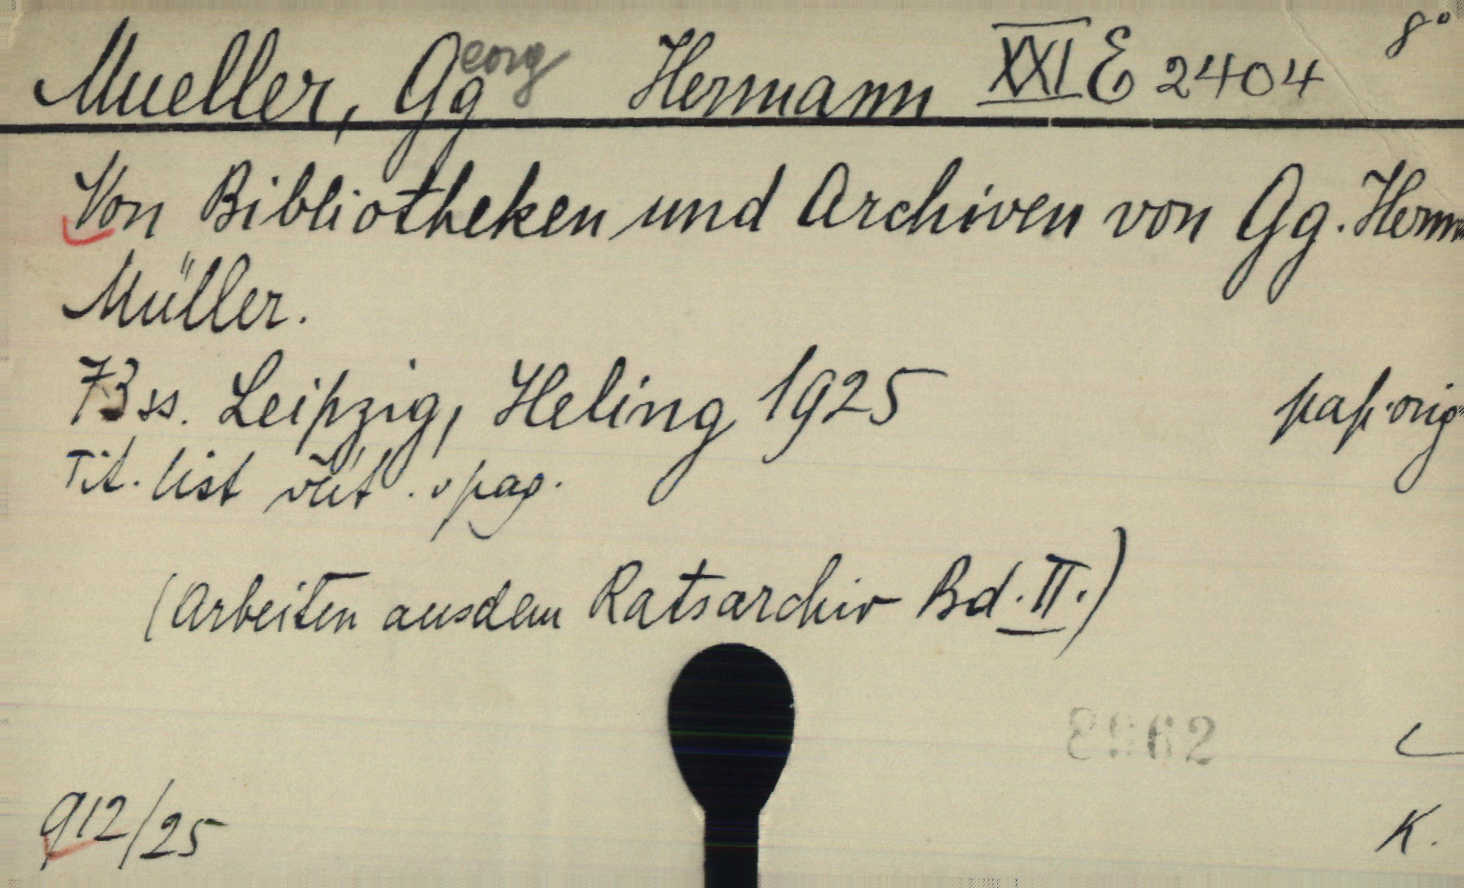 Mueller, Gg Hermann XXI E 2404 8°
eorg
Von Bibliotheken und Archiven von Gg. Herm
Müller.
73 ss. Leipzig, Heling 1925 pap. orig
Tit. list
(Arbeiten aus dem Ratsarchiv Bd. II.)
8962
912/25 K.